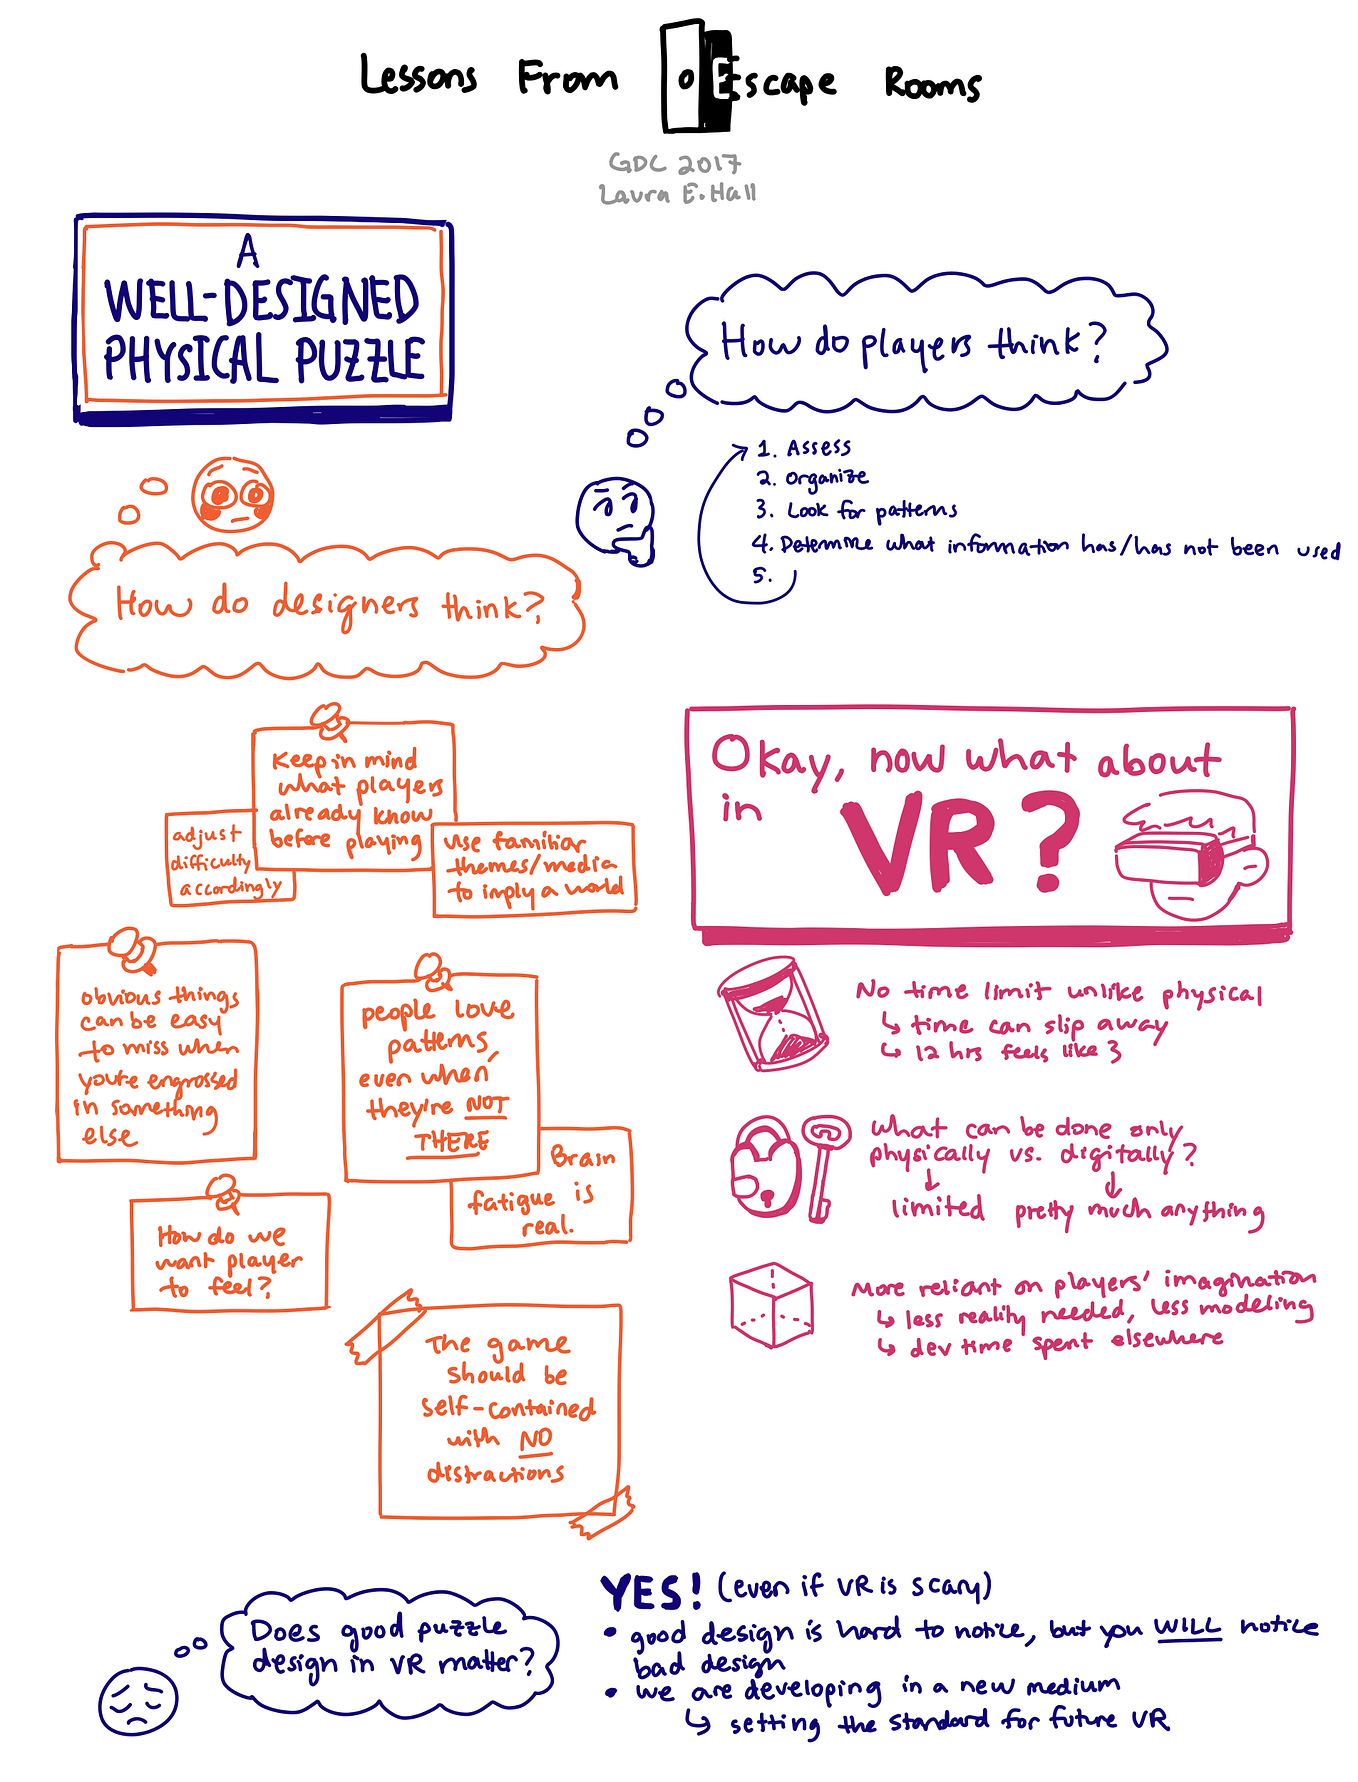 Lessons From Escape Rooms
GDC 2017
Laura E. Hall
A
WELL-DESIGNED
PHYSICAL PUZZLE
How do players think?
1. Assess
2. Organize
3. Look for patterns
4. Determine what information has/has not been used
5.
How do designers think?
Keep in mind
what players
already know
before playing
adjust
difficulty
accordingly
use familiar
themes/media
to imply a world
obvious things
can be easy
to miss when
you're engrossed
in something
else
people love
patterns,
even when
they're NOT
THERE
Brain
fatigue is
real.
How do we
want player
to feel?
The game
should be
self-contained
with NO
distractions
Okay, now what about
in VR?
No time limit unlike physical
↳ time can slip away
↳ 12 hrs feels like 3
What can be done only
physically vs. digitally?
↓ ↓
limited pretty much anything
More reliant on players' imagination
↳ less reality needed, less modeling
↳ dev time spent elsewhere
Does good puzzle
design in VR matter?
YES! (even if VR is scary)
• good design is hard to notice, but you WILL notice
bad design
• we are developing in a new medium
↳ setting the standard for future VR